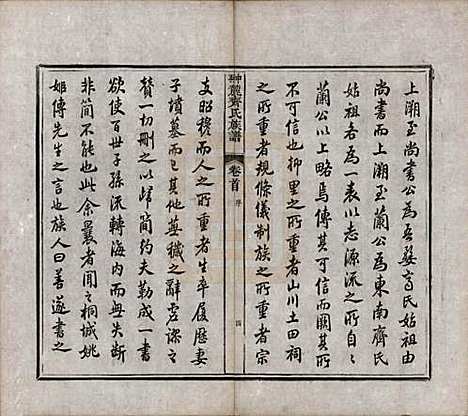 上溯至尚書公為吾婺齊氏始祖由
尚書而上溯至蘭公為東南齊氏
始祖各為一表以志源流之所自
蘭公以上略焉傳其可信而闕其所
不可信也抑里之所重者山川土田祠
之所重者規條儀制族之所重者宗
翀麓齊氏族譜
卷首
序
四
支昭穆而人之所重者生卒履歷妻
子墳墓而已其他蕪穢之辭虛謬之
贊一切刪之以歸簡約夫勒成一書
欲使百世子孫流轉海內而毋失斷
非簡不能也此余曩者聞之桐城姚
姬傳先生之言也族人曰善遂書之